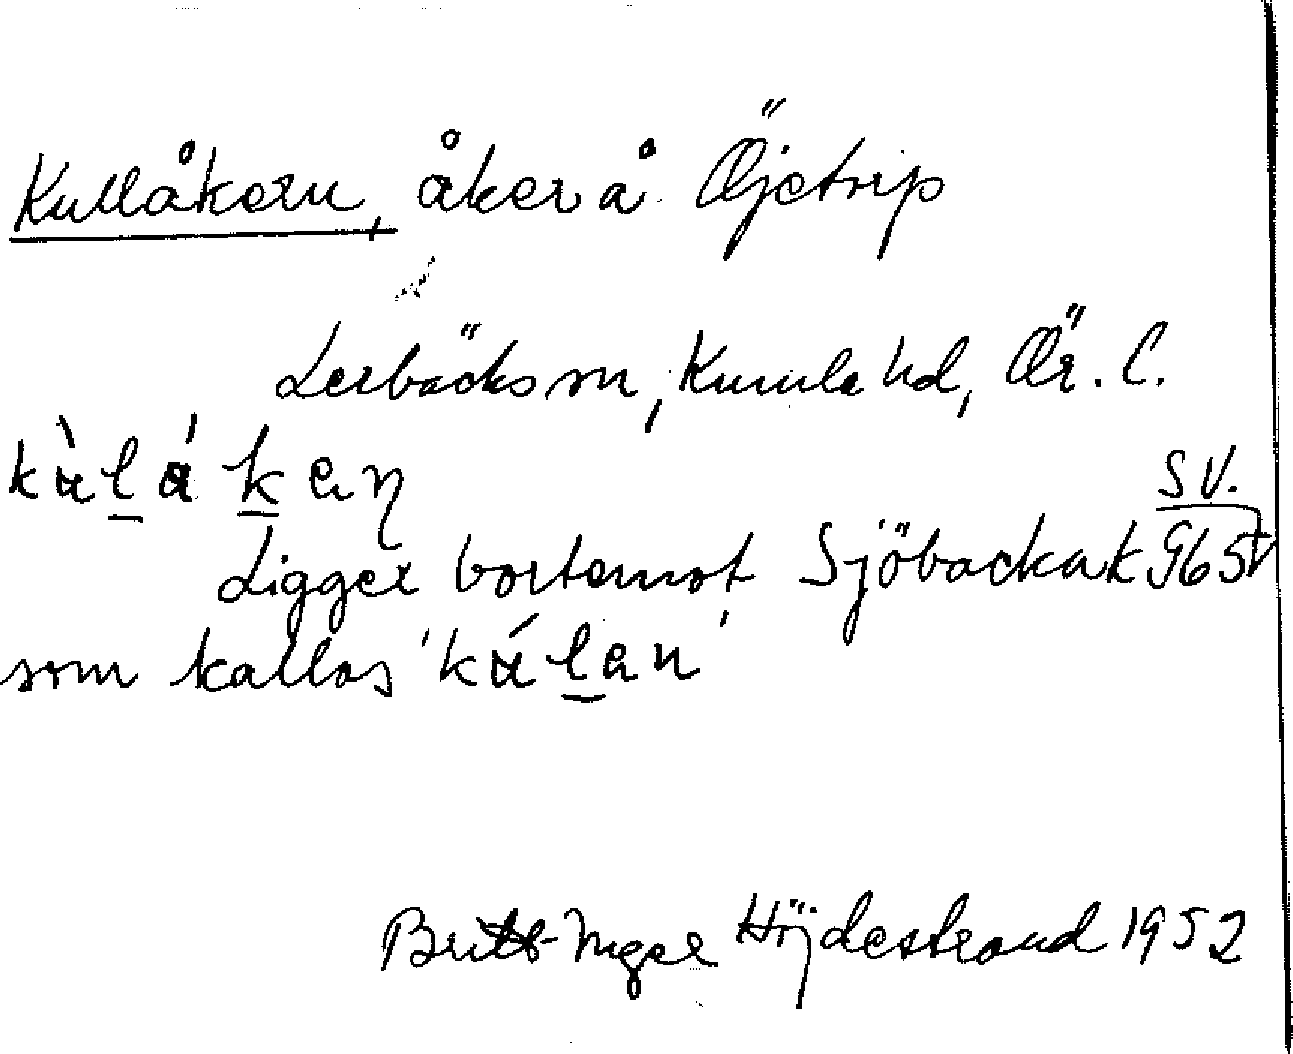 Kullåkern, åker å Öjetrip
Lerbäcks sn, Kumla hd, Ör. l.
kùlákaɳ
SV.
Ligger bortemot Sjöbackak 965
som kallas 'kúlan'
Britt-Inger Höjdestrand 1952